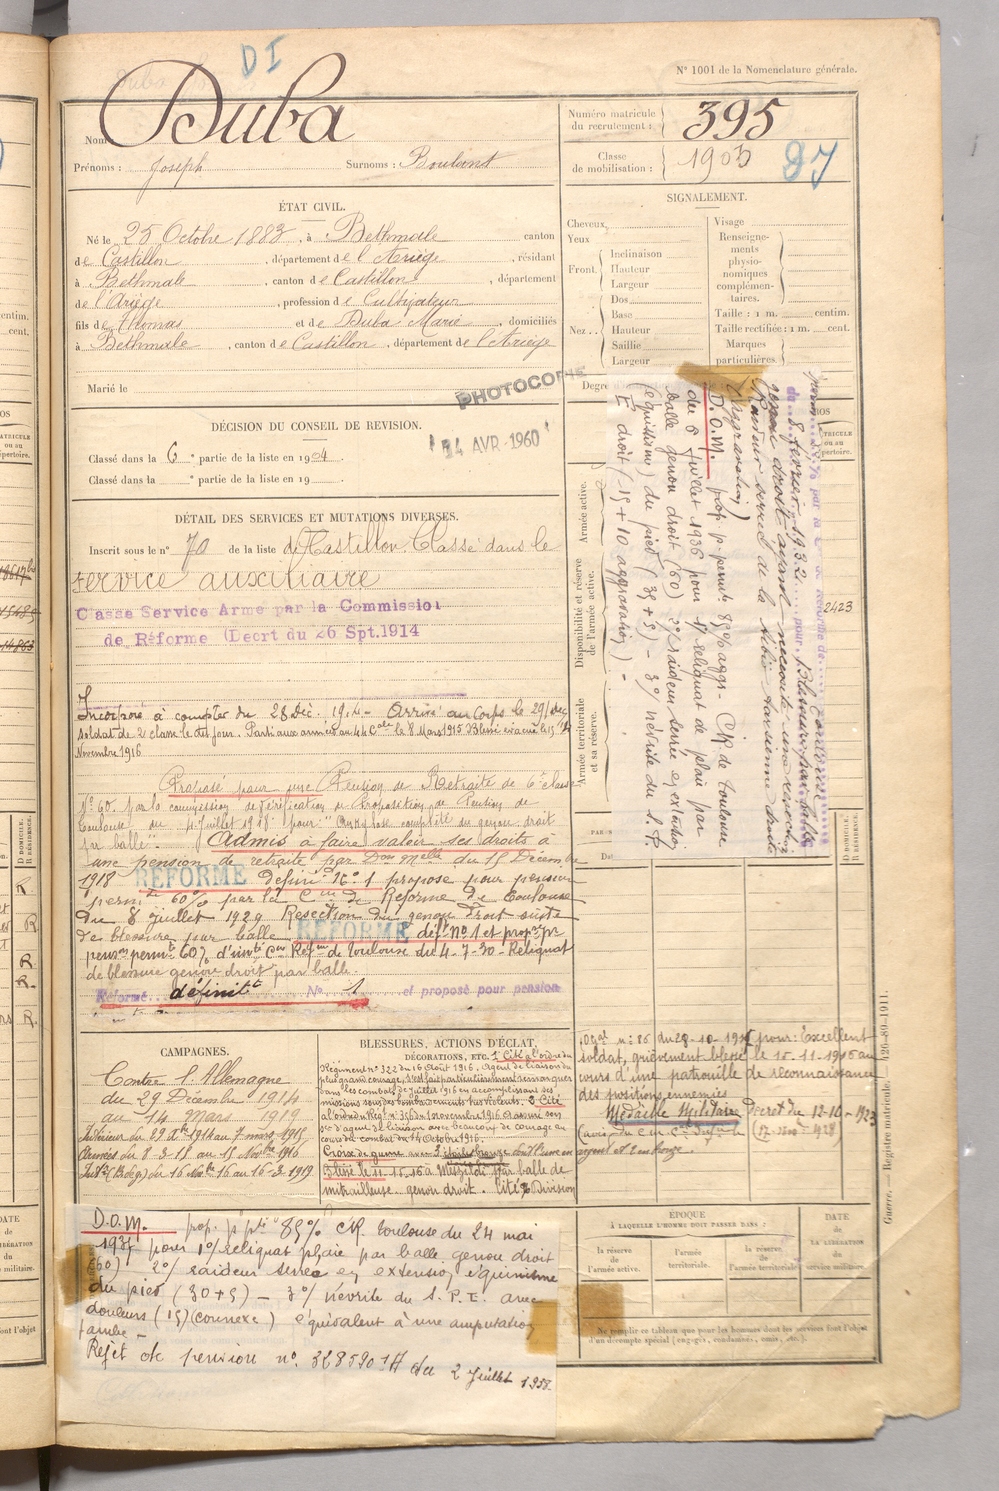 DI
N° 1001 de la Nomenclature générale.
Nom Duba
Prénoms : Joseph Surnoms : Boulant
Numéro matricule du recrutement : 395
Classe de mobilisation : 1903 87
ÉTAT CIVIL.
Né le 25 Octobre 1883, à Bethmale canton
de Castillon, département de l'Ariège, résidant
à Bethmale, canton de Castillon, département
de l'Ariège, profession de Cultivateur
fils de Thomas et de Duba Marie, domiciliés
à Bethmale, canton de Castillon, département de l'Ariège
Marié le
PHOTOCOPIE
14 AVR 1960
SIGNALEMENT.
Cheveux
Yeux
Front. Inclinaison
Hauteur
Largeur
Nez . . Dos
Base
Hauteur
Saillie
Largeur
Visage
Renseignements physionomiques complémentaires.
Taille : 1 m. centim.
Taille rectifiée : 1 m. cent.
Marques particulières
Degré
DÉCISION DU CONSEIL DE REVISION.
Classé dans la 6e partie de la liste en 1904.
Classé dans la e partie de la liste en 19
DÉTAIL DES SERVICES ET MUTATIONS DIVERSES.
Inscrit sous le n° 70 de la liste de Castillon. Classé dans le
service auxiliaire
Classe Service Armé par la Commission
de Réforme (Décrt du 26 Spt. 1914
Incorporé à compter du 28 Déc. 1914 – Arrivé au Corps le 29 dec
soldat de 2 classe le dit jour. Parti aux armées au 44 Cal le 8 Mars 1915 Blessé évacué le 15
Novembre 1916
Proposé pour une Pension de Retraite de 6e classe
N° 60. par la commission de vérification de Proposition de Pension de
Toulouse du 4 Juillet 1918 pour "Ankylose complète du genou droit
par balle". Admis à faire valoir ses droits à
une pension de retraite par Don Melle du 15 Décembre
1918 RÉFORMÉ définif N° 1 proposé pour pension
permte 60% par la Con de Réforme de Toulouse
du 8 juillet 1929 Résection du genou droit suite
de blessure par balle RÉFORMÉ déft N° 1 et prop. pr
pension permte 60% d'invté Con Réfme de Toulouse du 4-7-30 – Reliquat
de blessure genou droit par balle.
Réformé définitt No 1 et proposé pour pension
8 février 1932 pour
genou droit ayant nécessité une résection
Raideur serrée de la tibio tarsienne droite
(aggravation)
D.O.M. prop. p. permte 85% aggr. – CR. de Toulouse
du 6 Juillet 1936 pour 1°/ reliquat de plaie par
balle genou droit (60) 2°/ raideur serrée en extension
(équinisme) du pied (35 + 5) – 3°/ névrite du S.P.
E droit (15 + 10 aggravation) –
2423
Armée active.
Disponibilité et réserve de l'armée active.
Armée territoriale et sa réserve.
CAMPAGNES.
Contre l'Allemagne
du 29 Décembre 1914
au 14 Mars 1919
Intérieur du 29 Xbre 1914 au 7 mars 1915
Armées du 8-3-15 au 15 Novbre 1916
BLESSURES, ACTIONS D'ÉCLAT,
DÉCORATIONS, ETC. 1° Cité à l'ordre du
Régiment N° 322 du 16 Août 1916. Agent de liaison du
plus grand courage, s'est fait particulièrement remarquer
dans les combats de juillet 1916 en accomplissant ses
missions sous des bombardements très violents. 2° Cité
à l'ordre du Régt N° 356 du 1 novembre 1916. A assuré son
sce d'agent de liaison avec beaucoup de courage au
cours du combat du 14 octobre 1916.
Croix de guerre avec
Blessé le 11-15-16 à par balle de
mitrailleuse. genou droit. Cité Division
Ordre n° 86 du 28-10-19 pour: Excellent
soldat, grièvement blessé le 15-11-1916 au
cours d'une patrouille de reconnaissance
des positions ennemies
Médaille Militaire Décret du 12-10-1923
argent et 1 en bronze.
ÉPOQUE
À LAQUELLE L'HOMME DOIT PASSER DANS :
la réserve de l'armée active.
l'armée territoriale.
la réserve de l'armée territoriale.
DATE de LA LIBÉRATION du service militaire.
Ne remplir ce tableau que pour les hommes dont les services font l'objet
d'un décompte spécial (engagés, condamnés, omis, etc.).
Guerre. — Registre matricule. 126-89-1911.
D.O.M. prop. p. pte 85% CR. Toulouse du 24 mai
1937 pour 1°/ reliquat plaie par balle genou droit
(60) 2°/ raideur serrée en extension équinisme
du pied (30+5) – 3°/ névrite du S.P.E. avec
douleurs (15) (connexe) équivalent à une amputation
jambe –
Rejet de pension n° 3285901H du 2 Juillet 1958.